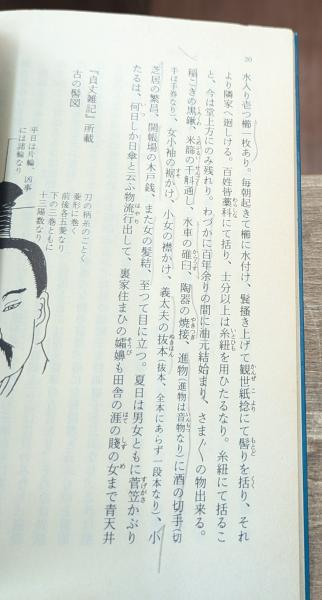 20
水入り壱つ櫛一枚あり。毎朝起きて櫛に水付け、髪掻き上げて観世紙捻にて髻りを括り、それ
より隣家へ廻しける。百姓皆藁料にて括り、士分以上は糸紐を用ひたるなり。糸紐にて括るこ
と、今は堂上方にのみ残れり。わづかに百年余りの間に油元結始まり、さま〲の物出来る。
稲こきの黒鍬、米篩の千斛通し、水車の碓臼、陶器の焼接、進物(進物は音物なり)に酒の切手(切
手は手券なり)、女小袖の裾かけ、小女の襟かけ、義太夫の抜本(抜本、全本にあらず一段本なり)、小
芝居の繁昌、開帳場の木戸銭、また女の髪結、至つて目に立つ。夏日は男女ともに菅笠かぶり
たるは、何日しか日傘と云ふ物流行出して、裏家住まひの嬬嬶も田舎の涯の賤の女まで青天井
『貞丈雑記』所載
古の髻図
平日は片輪、凶事
には諸輪なり
刀の柄糸のごとく
菱形に巻く
前後各五菱なり
下の三巻ともに
十三陽数なり